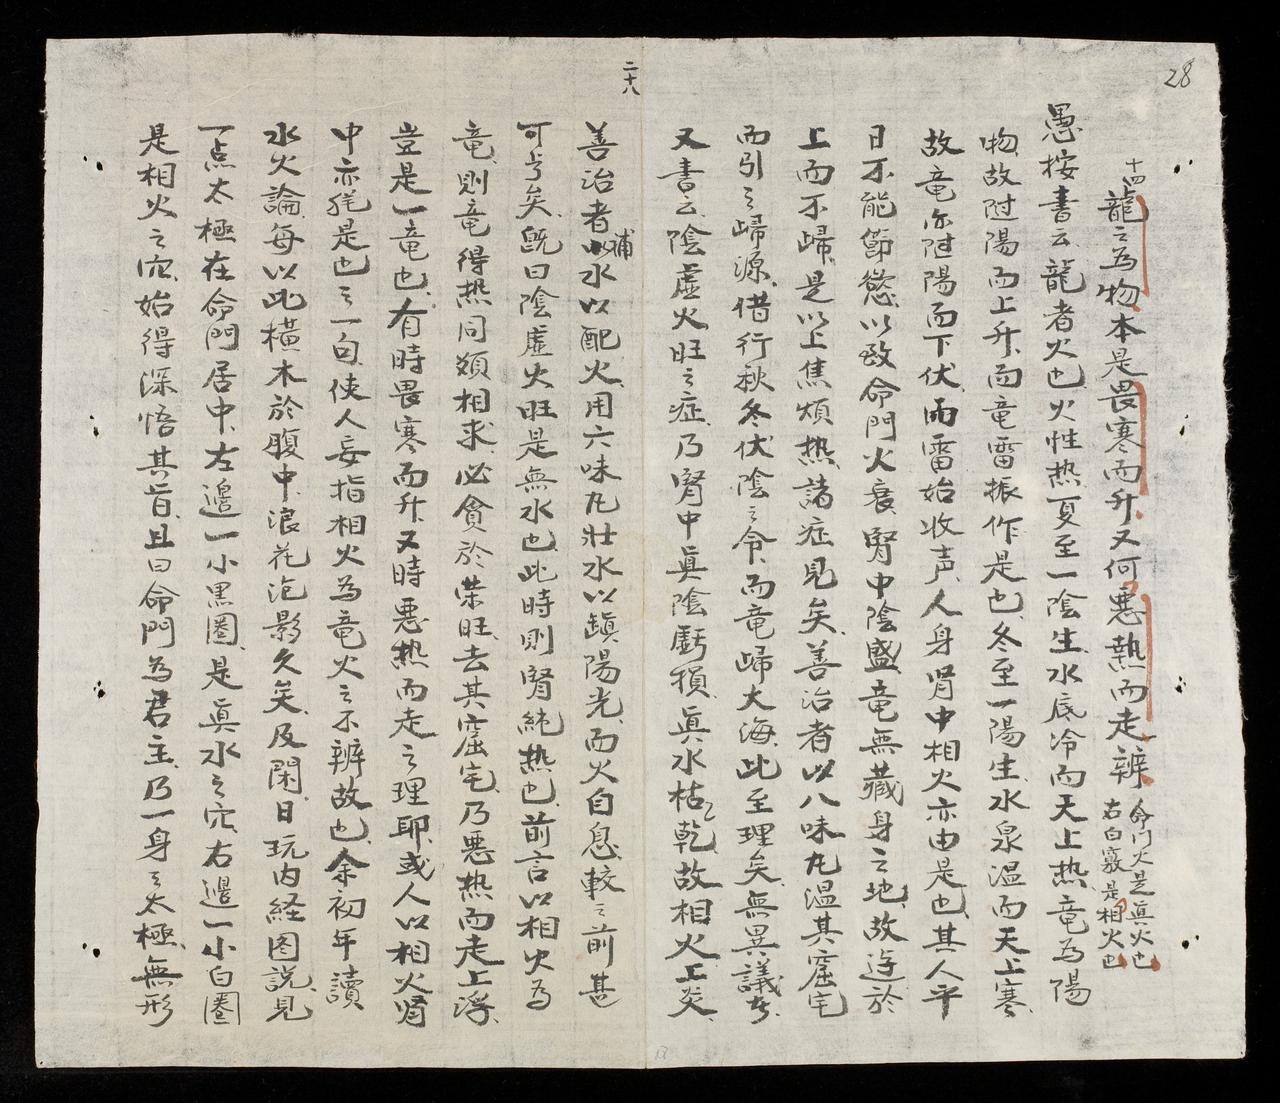 28
二十八
十四龍之為物本是畏寒而升又何惡熱而走辨
命门火是真火也
右白竅是相火也
愚按書云龍者火也火性热夏至一陰生水底冷而天上热竜為陽
物故附陽而上升而竜雷振作是也冬至一陽生水泉温而天上寒
故竜亦附陽而下伏而雷始收声人身肾中相火亦由是也其人平
日不能節慾以致命門火衰腎中陰盛竜無藏身之地故遊於
上而不歸是以上焦煩热諸症見矣善治者以八味丸温其窟宅
而引之歸源借行秋冬伏陰之令而竜歸大海此至理矣無異議考
又書云陰虛火旺之症乃腎中眞陰虧損眞水枯乾故相火上炎
善治者補水以配火用六味丸壯水以鎮陽光而火自息較之前甚
可考矣既曰陰虛火旺是無水也此時則腎純热也前言以相火為
竜則竜得热同類相求必貪於荣旺去其窟宅乃惡热而走上浮
豈是一竜也有時畏寒而升又時惡热而走之理耶或人以相火肾
中亦祂是也之一句使人妄指相火為竜火之不辨故也余初年讀
水火論每以此横木於腹中浪花泡影久矣及閑日玩内経图説見
一点太極在命門居中左邊一小黒圈是眞水之穴右邊一小白圈
是相火之穴始得深悟其旨且曰命門為君主乃一身之太極無形